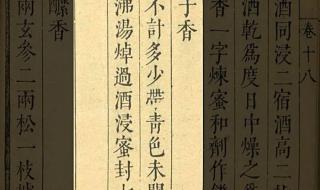 卷十八
酒同浸二宿酒高二
酒乾為度日中燥之
香一字煉蜜和劑作餅
子香
不計多少帶青色未開
沸湯焯過酒浸蜜封
香
兩玄參二兩松一枝